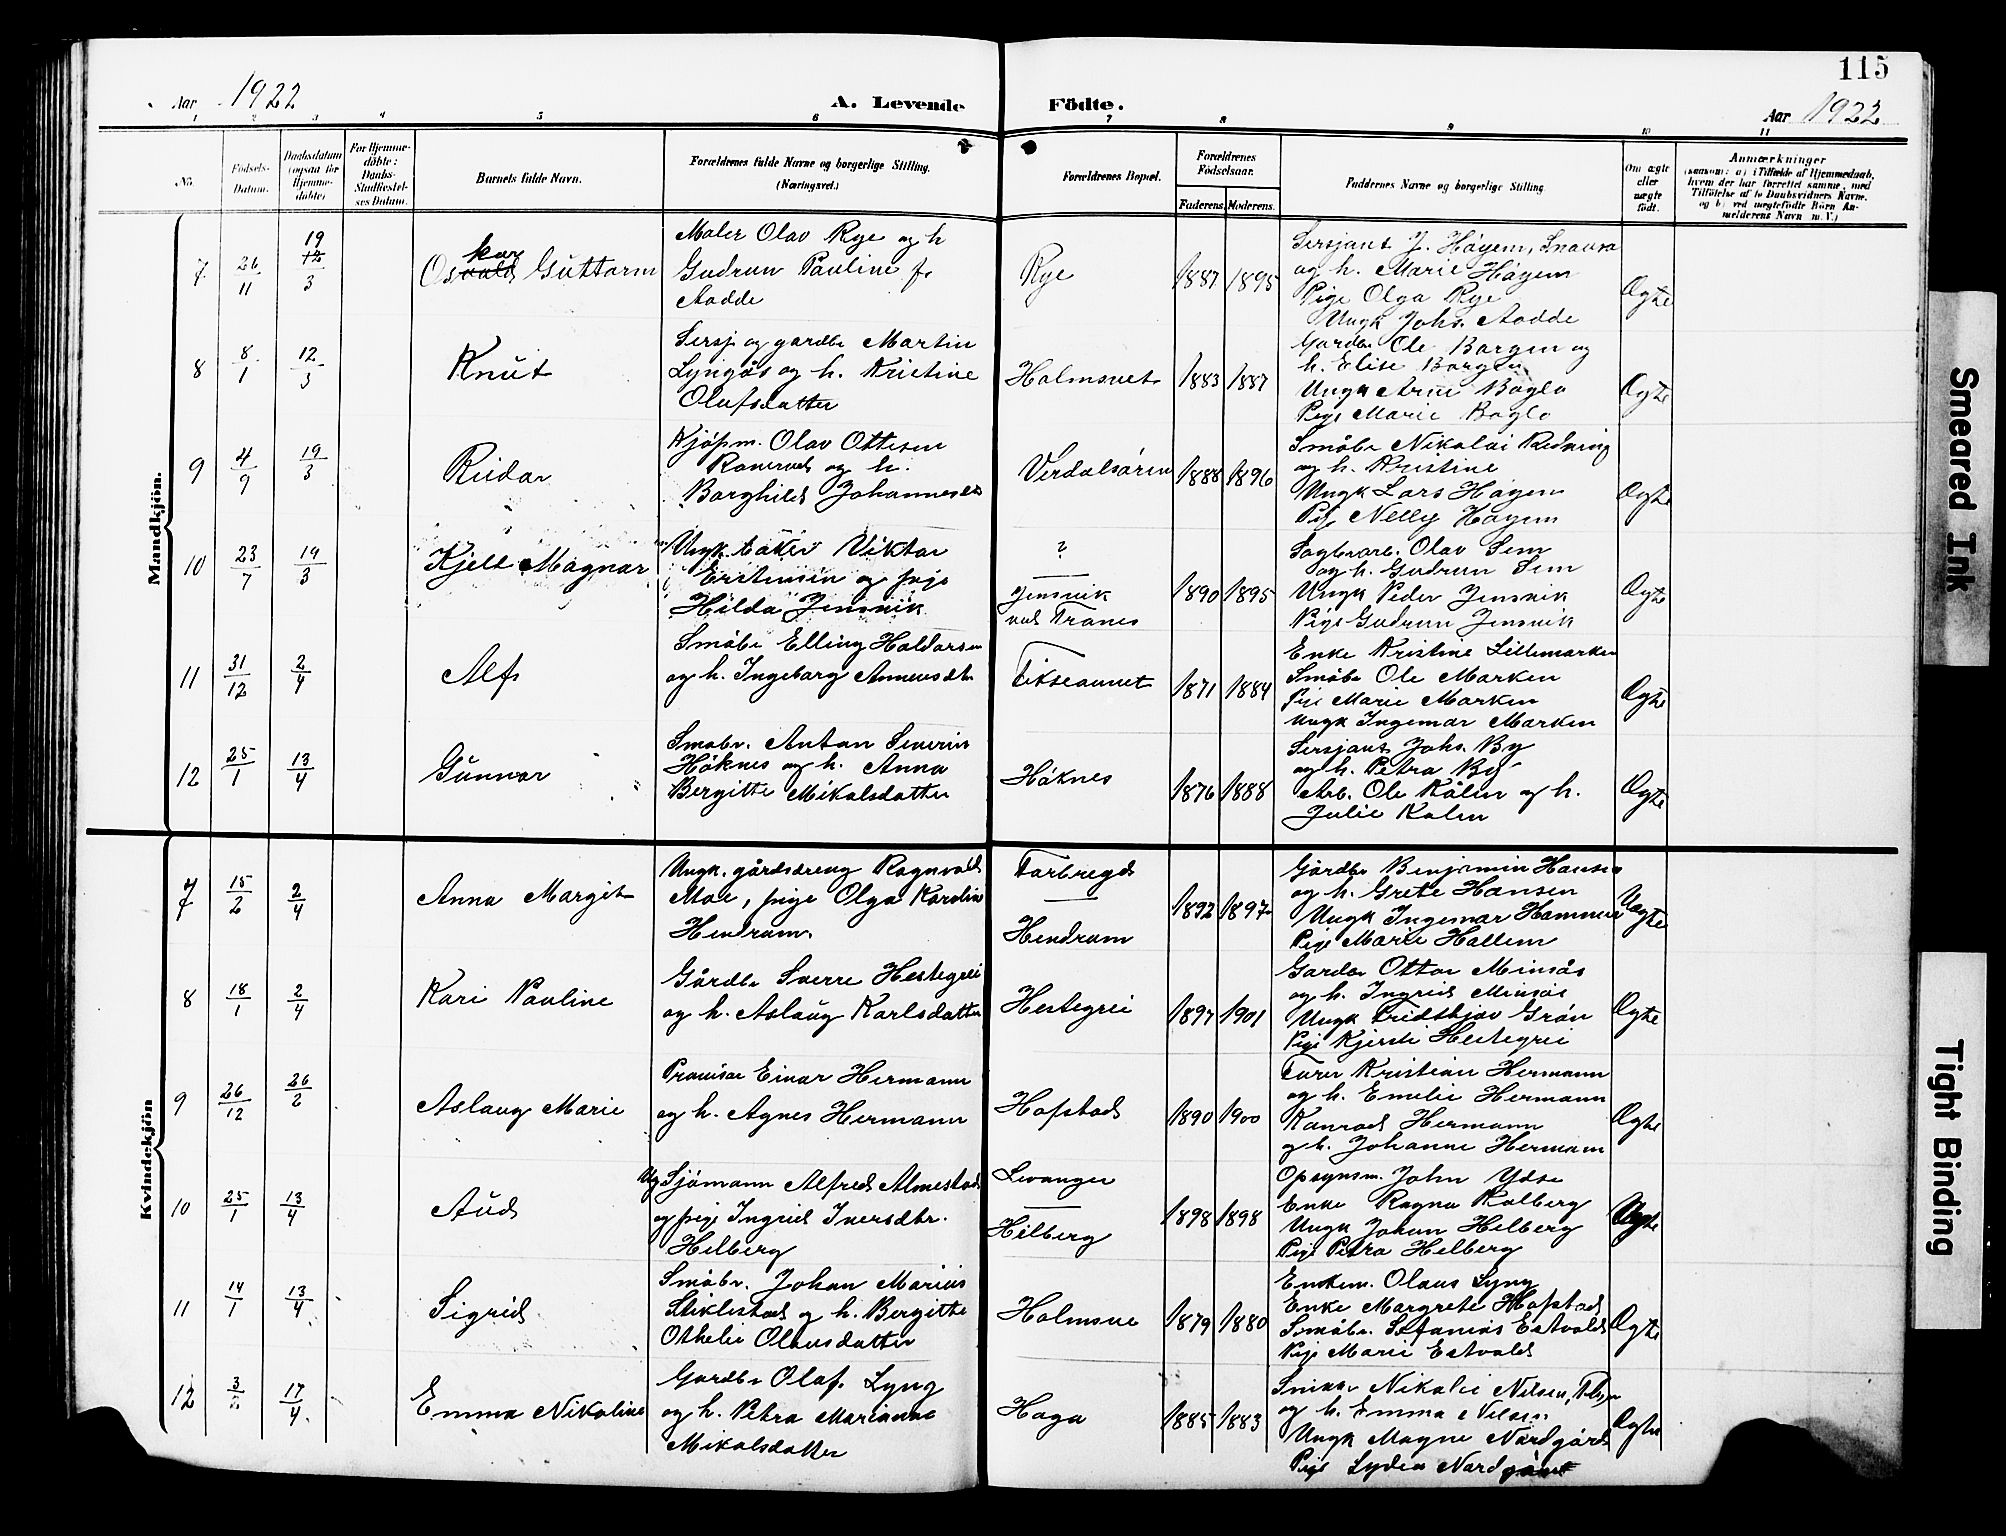 115
Aar 1922
A. Levende
Födte.
Aar 1922
1 2 3 4 5 6 7 8 9 10 11
No.
Födsels-
Datum.
Daabsdatum
(ogsaa for
Hjemme-
døbte)
For Hjemme-
döbte:
Daabs-
Stadfæstel-
ses Datum.
Barnets fulde Navn.
Forældrenes fulde Navne og borgerlige Stilling.
(Næringsvei.)
Forældrenes Bopæl.
Forældrenes
Födselsaar.
Faderens. Moderens.
Faddernes Navne og borgerlige Stilling.
Om ægte
eller
uægte
født.
Anmærkninger
(saasom: a) i Tilfælde af Hjemmedaab,
hvem der har forrettet samme, med
Tilföielse af to Daabsvidners Navne.
og b) ved uægtefödte Börn An-
melderens Navn m. V.)
Mandkjön.
7 26/11 19 12/3 Oskar Guttorm
Maler Olav Rye og h
Gudrun Pauline f.
Aadde
Rye 1887 1895
Sersjant J. Höyem, Snausa
og h. Marie Höyem
Pige Olga Rye
Ungk Johs. Aadde
Ægte
8 8/1 12/3 Knut
Sersj og gardbr Martin
Lyngås og h. Kristine
Olafsdatter
Holmsvet 1883 1887
Gardbr Ole Borgen og
h. Elise Borgen
Ungk Arne Baglo
Pige Marie Baglo
Ægte
9 4/9 19/3 Reidar
Kjöpm. Olav Ottesen
og h.
Borghild Johannesd
Verdalsören 1888 1896
Småbr Nikolai
og h. Kristine
Ungk Lars Höyem
Pige Nelly Höyem
Ægte
10 23/7 19/3 Kjell Magnar
Ungk baker Viktor
og pige
Hilda Jensvik
?
Jensvik
ved Tranes
1890 1895
Sagbrarb. Olav Sem
og h. Gudrun Sem
Ungk Peder Jensvik
Pige Gudrun Jensvik
Ægte
11 31/12 2/4 Alf
Småbr Elling Haldorsen
og h. Ingeborg
Fikseaunet 1871 1884
Enke Kristine Lillemarken
Småbr Ole Marken
Pige Marie Marken
Ungk Ingemar Marken
Ægte
12 25/1 13/4 Gunnar
Småbr. Anton Severin
Höknes og h. Anna
Bergitte Mikalsdatter
Höknes 1876 1888
Sersjant Johs. By
og h. Petra By
Arb. Ole Kålen og h.
Julie Kålen
Ægte
Kvindekjön
7 15/2 2/4 Anna Margit
Ungk. gårdsdreng Ragnvald
Moe, pige Olga Karoline
Hendrum.
Forbregd
Hendrum
1892 1897
Gårdbr Benjamin Hansen
og h. Grete Hansen
Ungk Ingemar Hammer
Pige Marie Hallem
Uægte
8 18/1 2/4 Kari Pauline
Gårdbr Sverre Hestegrei
og h. Aslaug Karlsdatter
Hestegrei 1897 1901
Gardbr Ottar Minsås
og h. Ingrid Minsås
Ungk Fridthjov Grön
Pige Kjersti Hestegrei
Ægte
9 26/12 26/2 Aslaug Marie
Provisor Einar Hermann
og h. Agnes Hermann
Hofstad 1890 1900
Furer Kristian Hermann
og h. Emelie Hermann
Konrad Hermann
og h. Johanne Hermann
Ægte
10 25/1 13/4 Aud
Ug Sjömann Alfred Almestad
og pige Ingrid Iversdtr.
Helberg
Levanger
Hilberg
1898 1898
Opsynsm. John Ydse
Enke Ragna Kolberg
Ungk Johan Helberg
Pige Petra Helberg
Uægte
11 14/1 13/4 Sigrid
Småbr. Johan Marius
Stiklestad og h. Bergitte
Othelie Olausdatter
Holmsve 1879 1880
Enkem. Olaus Lyng
Enke Margrete Hofstad
Småbr. Stefanias Estvold
Pige Marie Estvold
Ægte
12 3/2 17/4 Emma Nikoline
Gardbr Olaf Lyng
og h. Petra Marianne
Mikalsdatter
Haga 1885 1883
Snikker Nikolai Nilsen,
og h. Emma Nilsen
Ungk Magne Nordgård
Pige Lydia Nordgård
Ægte
Smeared Ink
Tight Binding